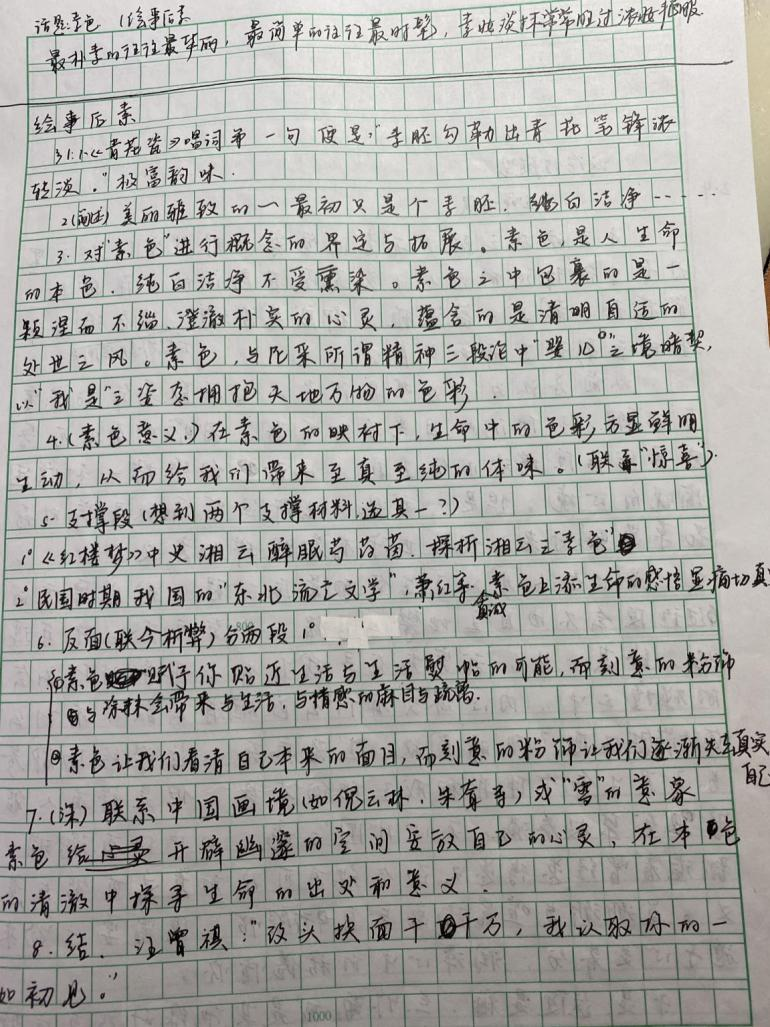 话题:素色 (1绘事后素
最朴素的往往最华丽，最简单的往往最时髦，素妆淡抹常常胜过浓妆艳服
绘事后素
引:1.《青花瓷》唱词第一句便是:"素胚勾勒出青花笔锋浓
转淡."极富韵味.
2(概述) 美丽雅致的一最初只是个素胚.纯白洁净……
3. 对"素色"进行概念的界定与拓展。素色,是人生命
的本色.纯白洁净不受熏染。素色之中包裹的是一
颗涅而不缁、澄澈朴实的心灵,蕴含的是清明自适的
处世之风。素色,与尼采所谓精神三段论中"婴儿"之境暗契,
以"我是"之姿态拥抱天地万物的色彩.
4.(素色意义.)在素色的映衬下,生命中的色彩方显鲜明
生动,从而给我们带来至真至纯的体味。(联"惊喜").
5. 支撑段(想到两个支撑材料,选其一?)
1°《红楼梦》中史湘云醉眠芍药茵.探析湘云之"素色"
2°民国时期我国的"东北流亡文学",萧红等素色上添生命的感悟显痛切真
6. 反面(联今析弊)分两段1°.
①素色赋予你贴近生活与生活熨帖的可能,而刻意的粉饰
与涂抹会带来与生活.与情感的麻目与疏离.
②素色让我们看清自己本来的面目,而刻意的粉饰让我们逐渐失去真实
自己
7.(深)联系中国画境(如倪云林.朱耷等)或"雪"的意象
素色给开辟幽邃的空间安放自己的心灵,在本色
的清澈中探寻生命的出处和意义.
8.结.汪曾祺:"改头换面千千万,我认取你的一
如初见。"
1000